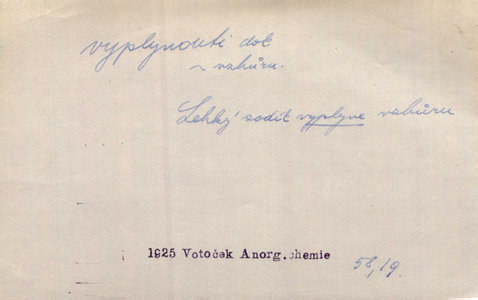 vyplynouti dok
~ vzhůru.
Lehký sodík vyplyne vzhůru
1925 Votoček Anorg.chemie 58,19.